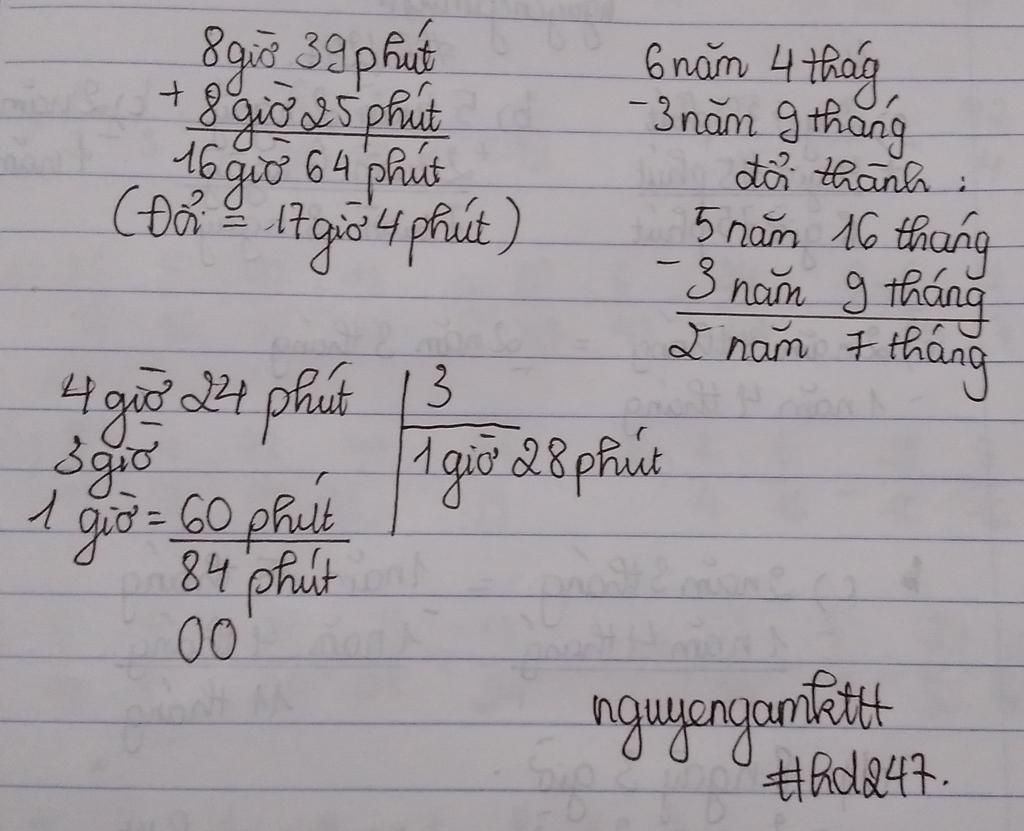 8 giờ 39 phút
+ 8 giờ 25 phút
16 giờ 64 phút
(Đổi = 17 giờ 4 phút)
6 năm 4 thág
- 3 năm 9 tháng
đổi thành :
5 năm 16 tháng
- 3 năm 9 tháng
2 năm 7 tháng
4 giờ 24 phút | 3
3 giờ | 1 giờ 28 phút
1 giờ = 60 phút
84 phút
00
nguyengamkttt
#hd247.